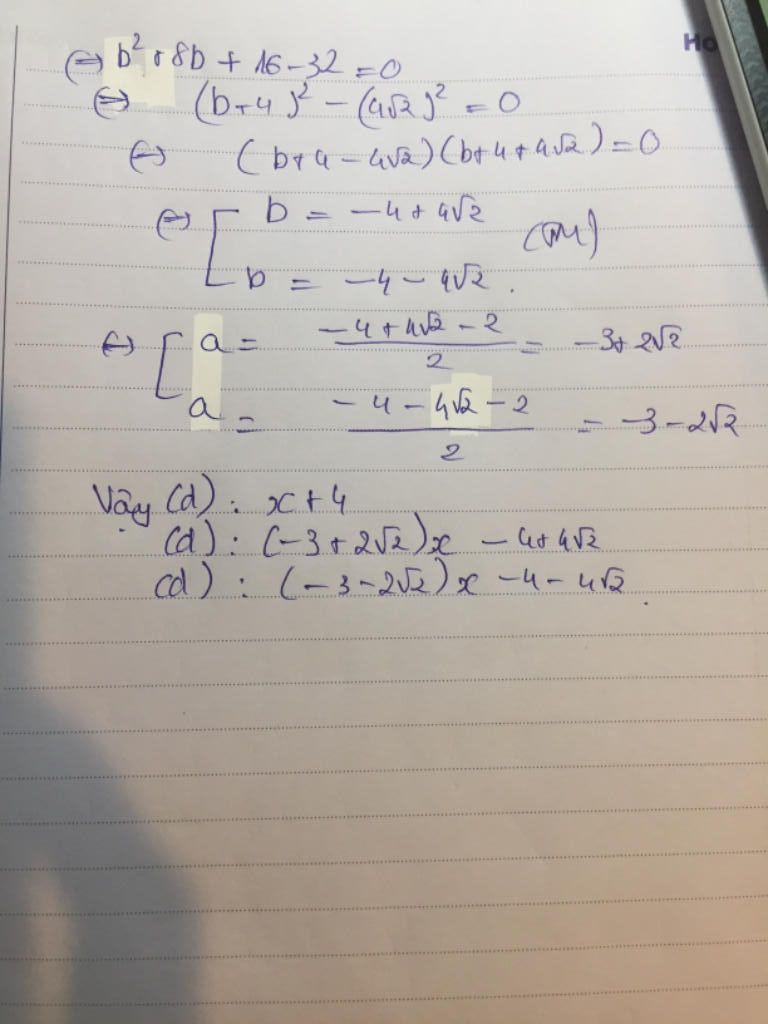 Ho
⇔ b² + 8b + 16 - 32 = 0
⇔ (b+4)² - (4√2)² = 0
⇔ (b+4 - 4√2)(b+4+4√2) = 0
⇔ [ b = -4 + 4√2
(TM)
b = -4 - 4√2 .
⇔ [ a = (-4 + 4√2 - 2)/2 = -3 + 2√2
a = (-4 - 4√2 - 2)/2 = -3 - 2√2
Vậy (d) : x + 4
(d) : (-3 + 2√2)x - 4 + 4√2
(d) : (-3 - 2√2)x - 4 - 4√2 .